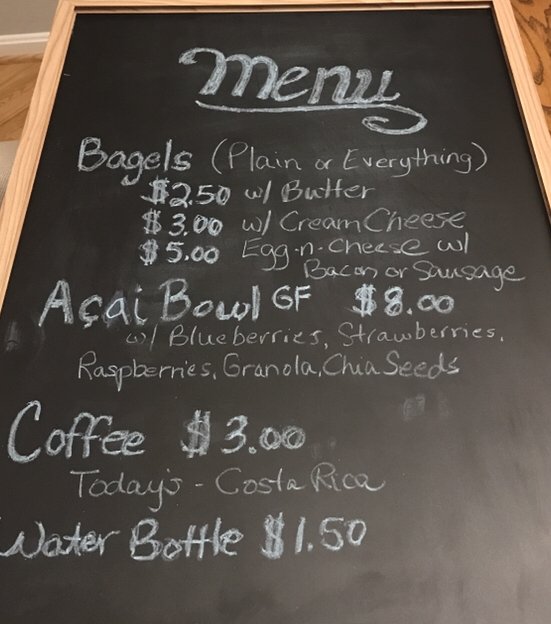 Menu
Bagels (Plain or Everything)
$2.50 w/ Butter
$3.00 w/ Cream Cheese
$5.00 Egg-n-Cheese w/
Bacon or Sausage
Açai Bowl GF $8.00
w/ Blueberries, Strawberries,
Raspberries, Granola, Chia Seeds
Coffee $3.00
Today's - Costa Rica
Water Bottle $1.50